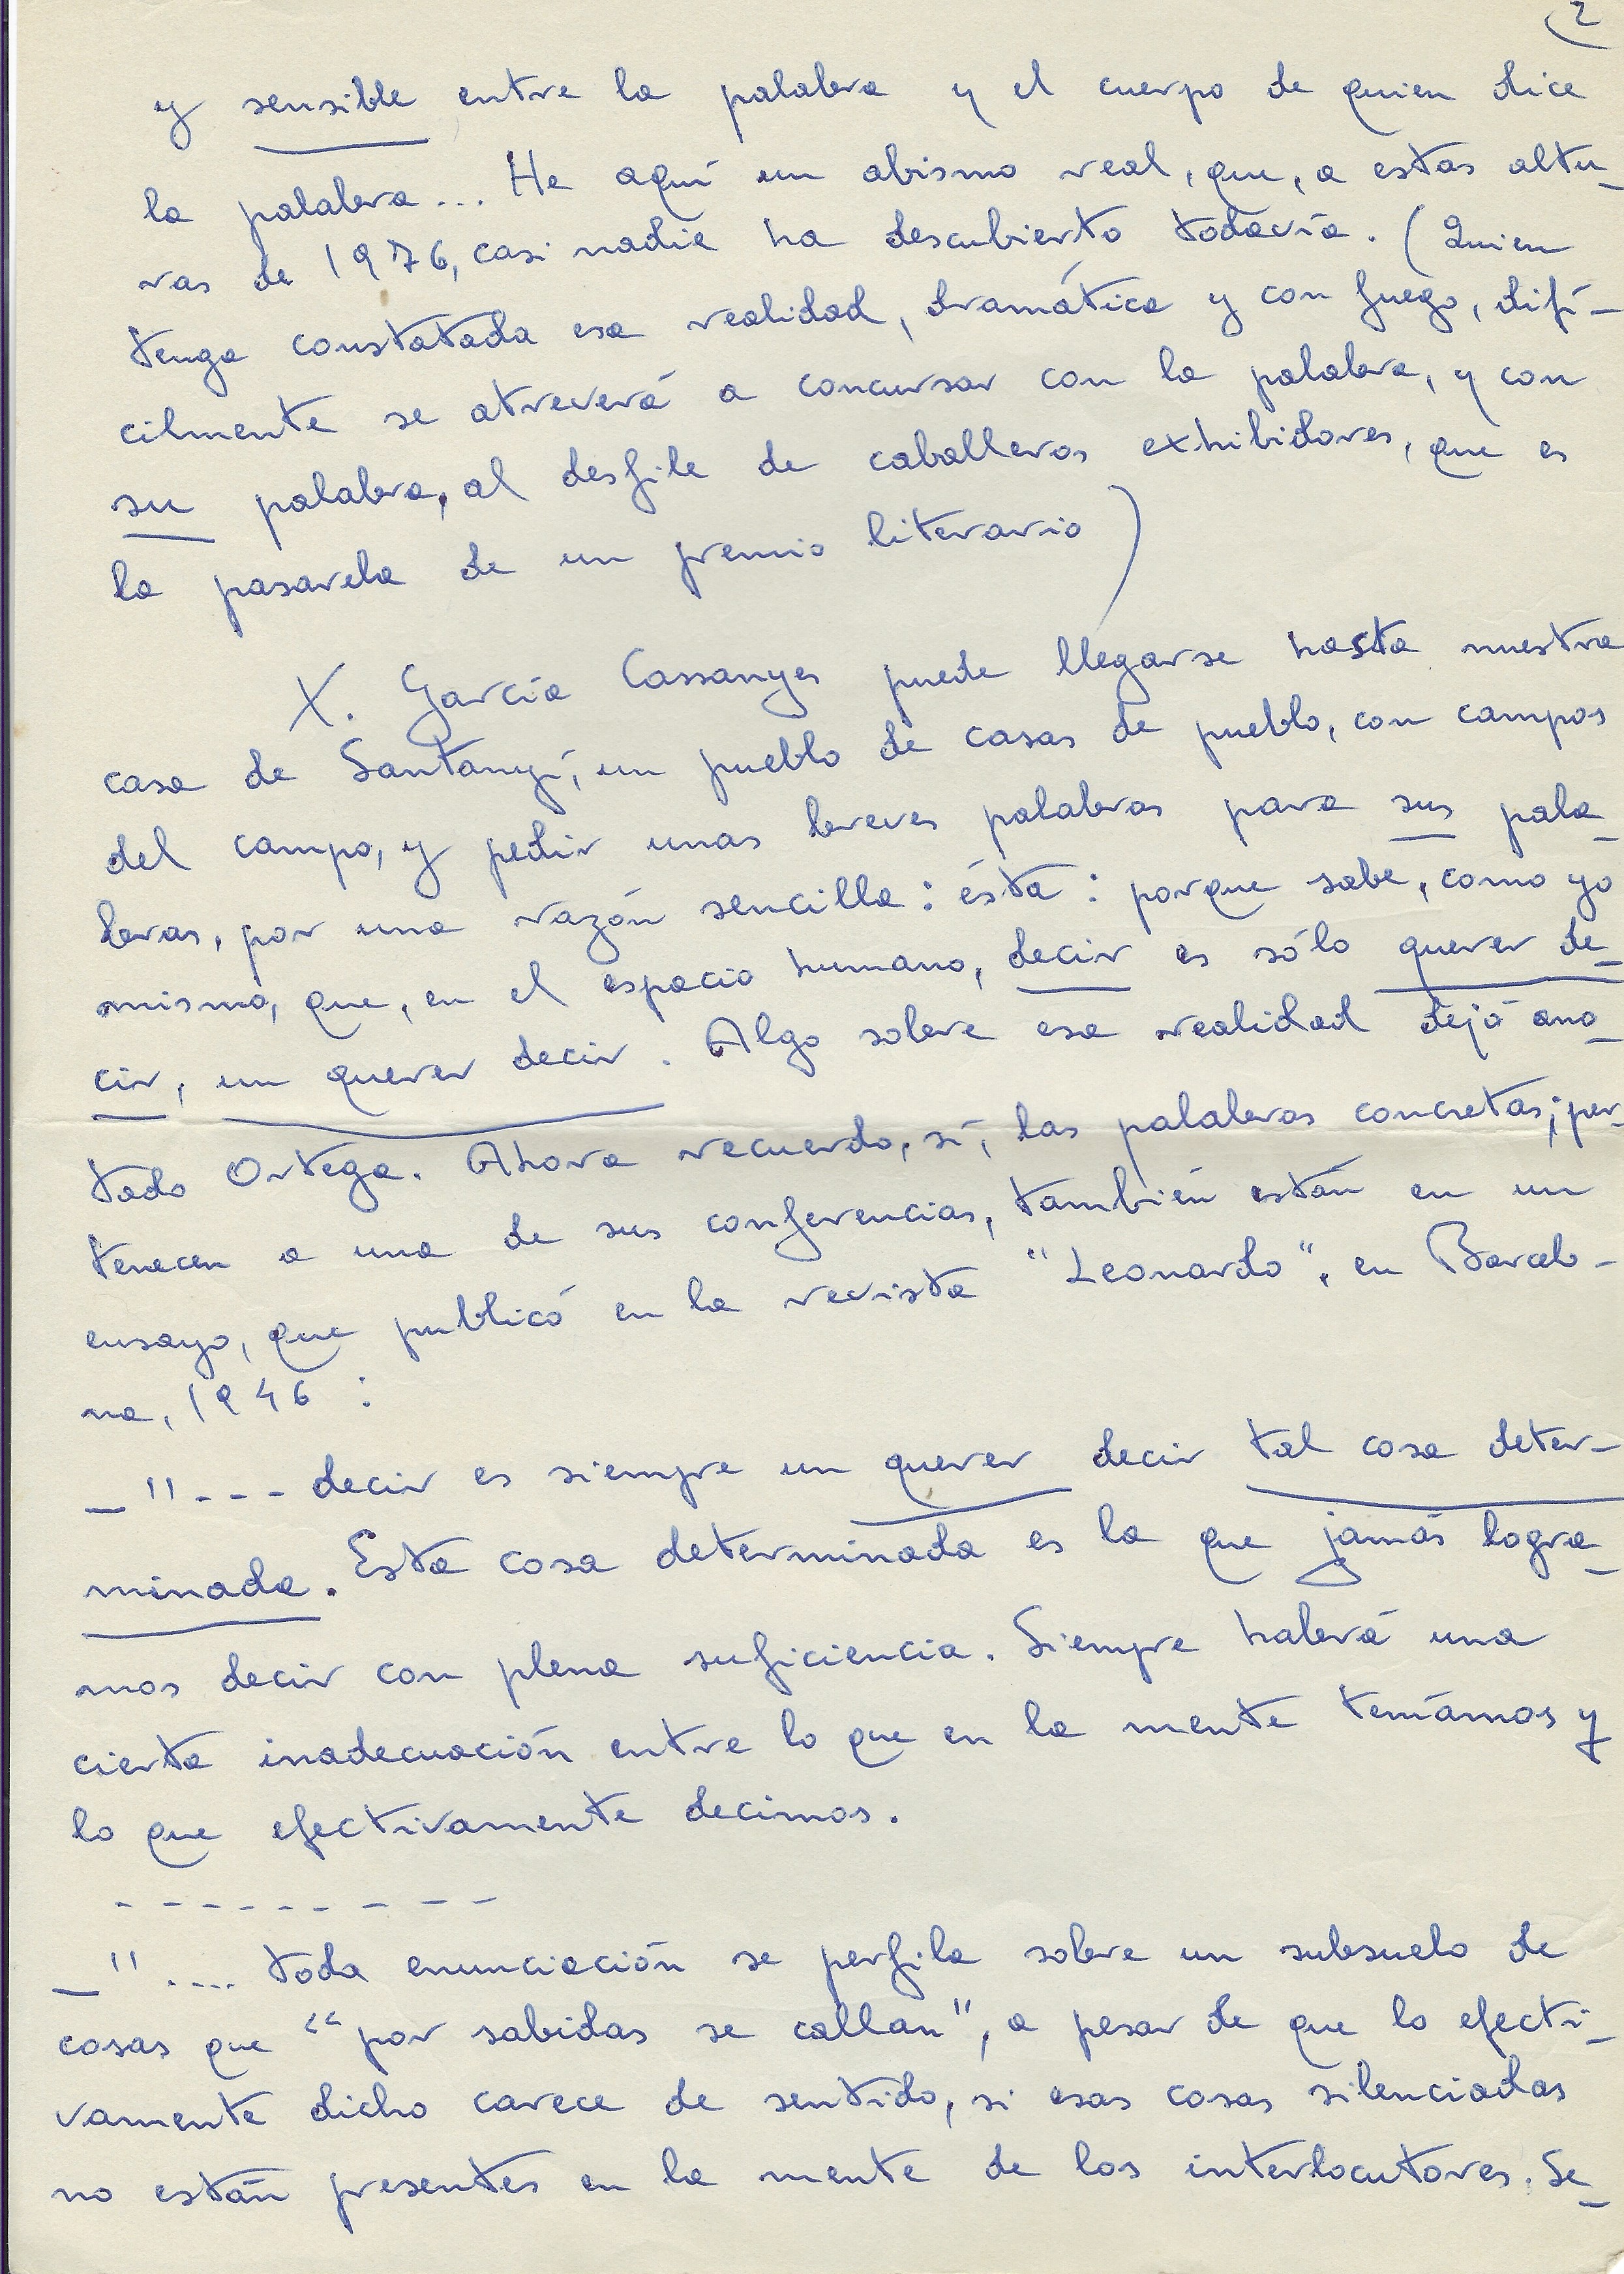 (2
y sensible entre la palabra y el cuerpo de quien dice
la palabra... He aquí un abismo real, que, a estas altu-
ras de 1976, casi nadie ha descubierto todavía. (Quien
tenga constatada esa realidad, dramática y con fuego, difí-
cilmente se atreverá a concursar con la palabra, y con
su palabra, al desfile de caballeros exhibidores, que es
la pasarela de un premio literario)
X. García Cassanyes puede llegarse hasta nuestra
casa de Santanyí, un pueblo de casas de pueblo, con campos
del campo, y pedir unas breves palabras para sus pala-
bras, por una razón sencilla: ésta: porque sabe, como yo
mismo, que, en el espacio humano, decir es sólo querer de-
cir, un querer decir. Algo sobre esa realidad dejó ano-
tado Ortega. Ahora recuerdo, sí, las palabras concretas; per-
tenecen a una de sus conferencias, también están en un
ensayo, que publicó en la revista "Leonardo", en Barcelo-
na, 1946:
_"--- decir es siempre un querer decir tal cosa deter-
minada. Esta cosa determinada es la que jamás logra-
mos decir con plena suficiencia. Siempre habrá una
cierta inadecuación entre lo que en la mente teníamos y
lo que efectivamente decimos.
- - - - - - - - -
_".... toda enunciación se perfila sobre un subsuelo de
cosas que "por sabidas se callan", a pesar de que lo efecti-
vamente dicho carece de sentido, si esas cosas silenciadas
no están presentes en la mente de los interlocutores. Se-